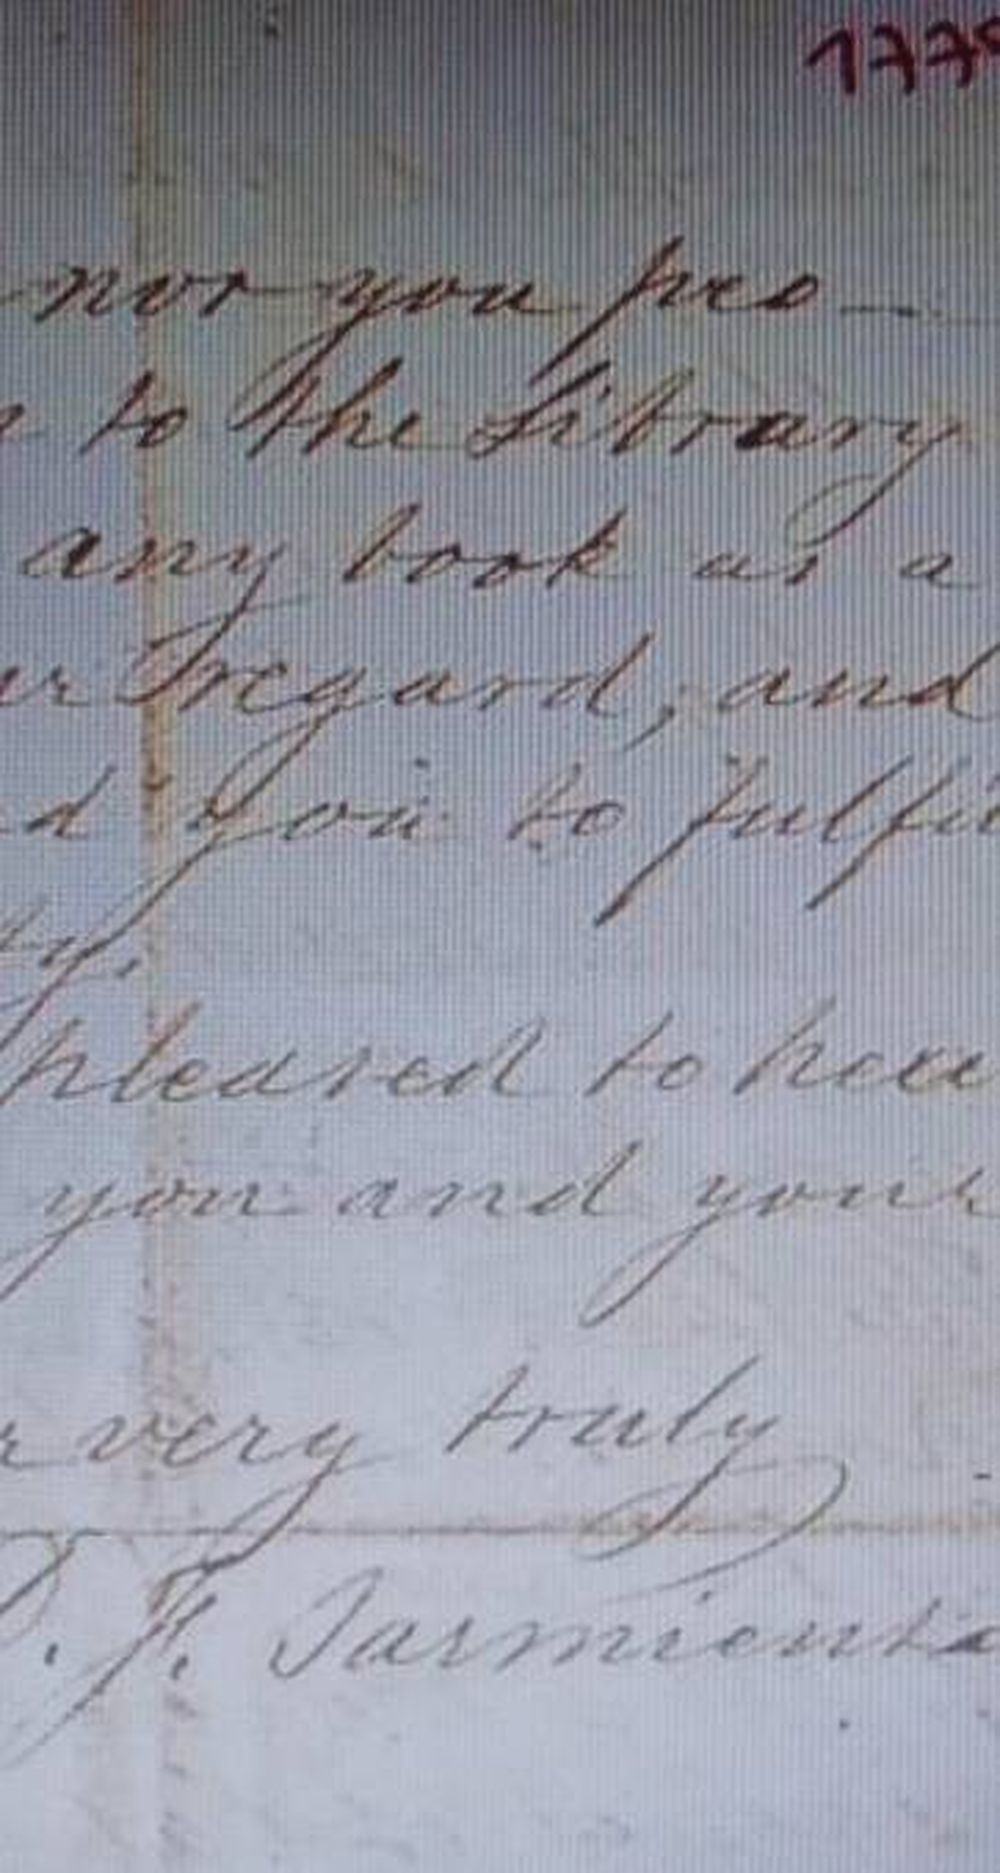 177
nor you pro-
to the Library
any book as a
regard, and
you to fulfil
pleased to hear
you and your
very truly
D. F. Sarmiento